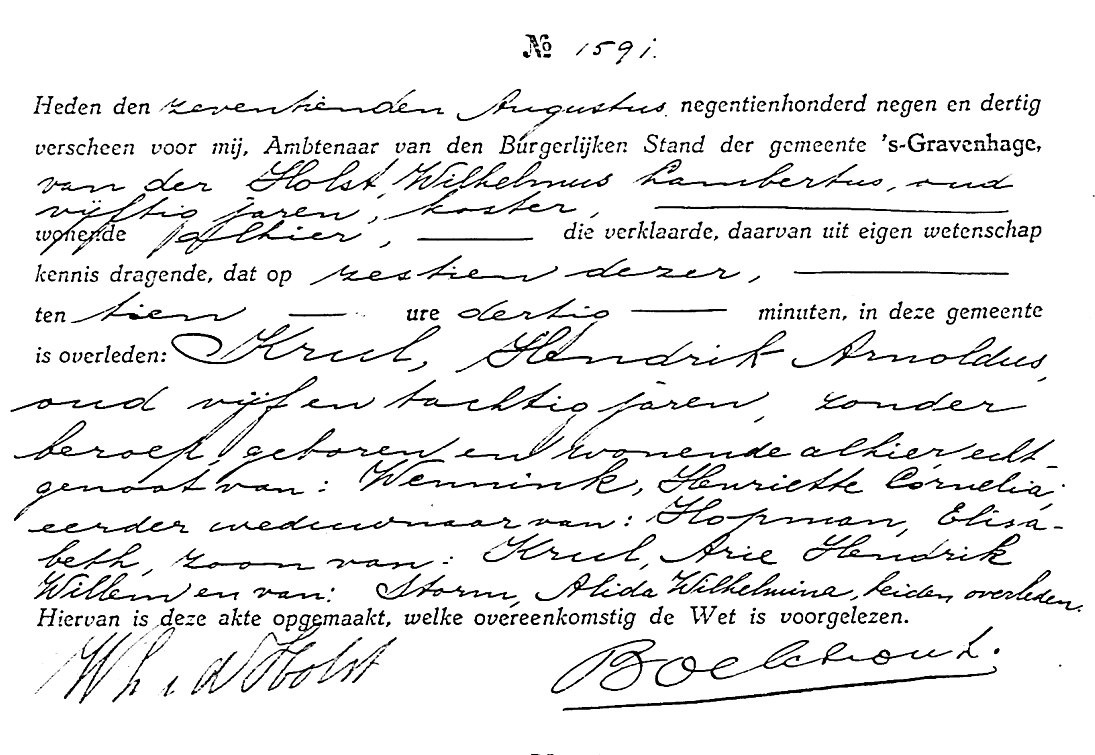 № 1591.
Heden den zeventienden Augustus negentienhonderd negen en dertig
verscheen voor mij, Ambtenaar van den Burgerlijken Stand der gemeente 's-Gravenhage,
van der Holst, Wilhelmus Lambertus, oud
vijftig jaren, koster,
wonende alhier, die verklaarde, daarvan uit eigen wetenschap
kennis dragende, dat op zestien dezer,
ten tien ure dertig minuten, in deze gemeente
is overleden: Krul, Hendrik Arnoldus,
oud vijf en tachtig jaren, zonder
beroep, geboren en wonende alhier, echt-
genoot van: Wennink, Henriette Cornelia,
eerder weduwnaar van: Hopman, Elisa-
beth, zoon van: Krul, Arie Hendrik
Willem en van: Storm, Alida Wilhelmina, beiden overleden.
Hiervan is deze akte opgemaakt, welke overeenkomstig de Wet is voorgelezen.
W L v d Holst